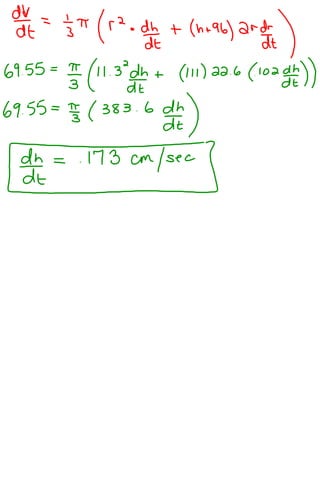 dV/dt = 1/3 π (r² · dh/dt + (h+96) 2r dr/dt)
69.55 = π/3 (11.3² dh/dt + (111) 22.6 (.102 dh/dt))
69.55 = π/3 (383.6 dh/dt)
dh/dt = .173 cm/sec